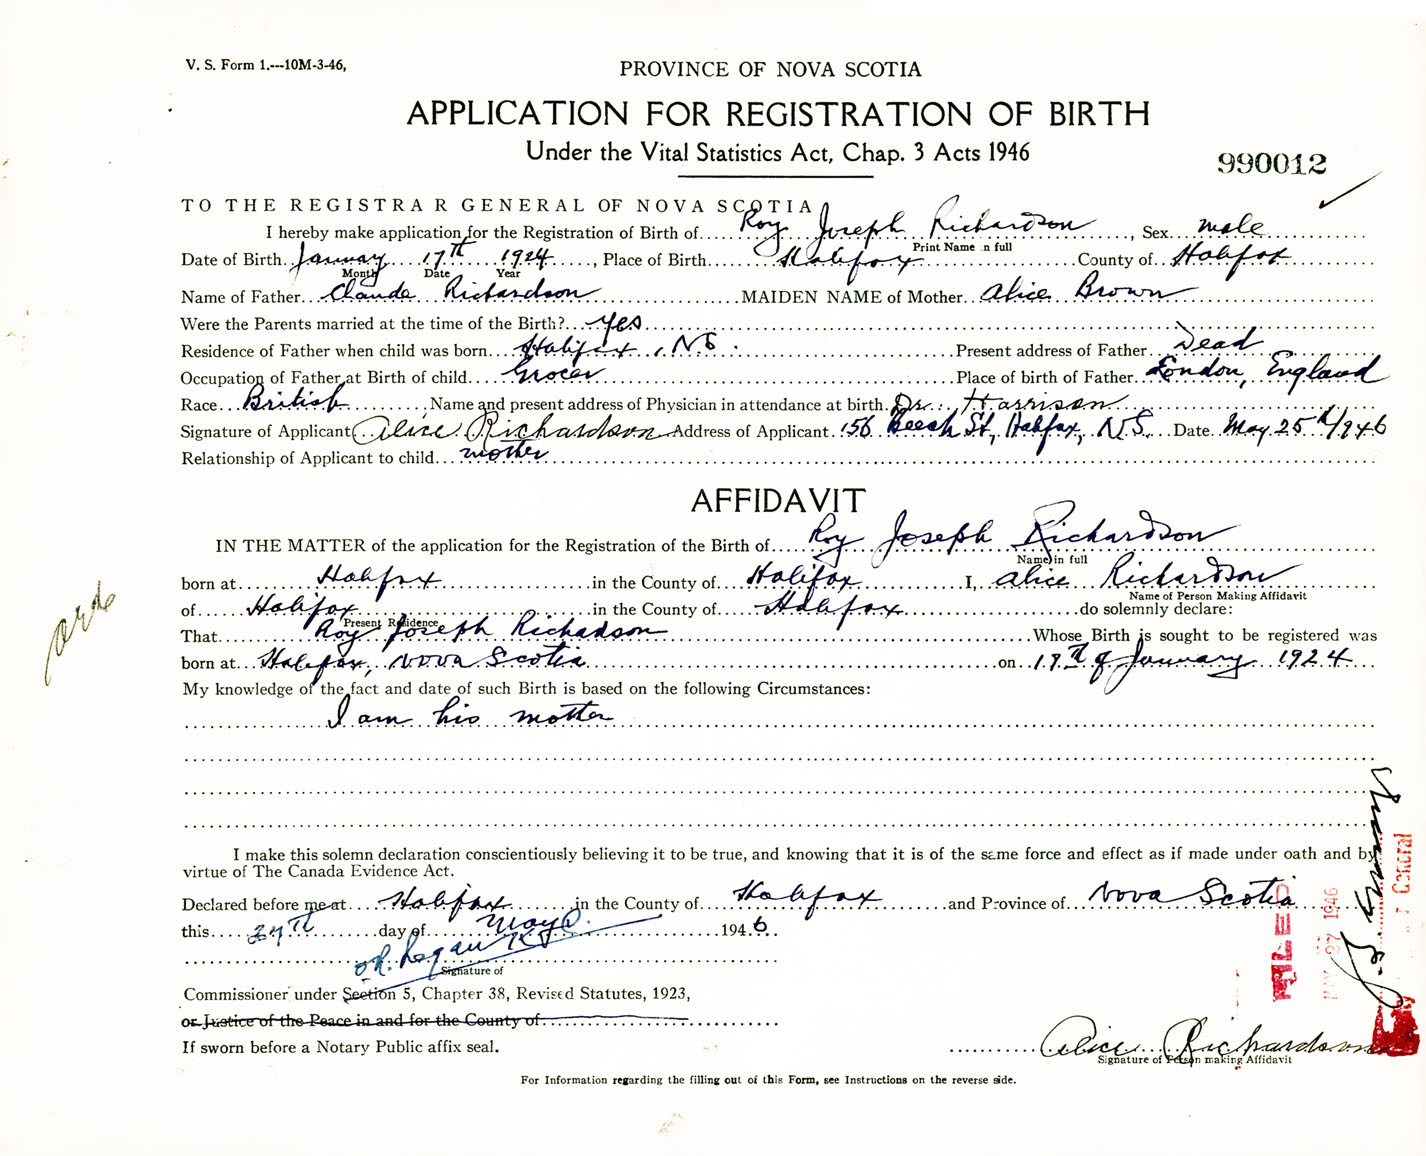 V. S. Form 1.---10M-3-46,
PROVINCE OF NOVA SCOTIA
APPLICATION FOR REGISTRATION OF BIRTH
Under the Vital Statistics Act, Chap. 3 Acts 1946
990012
TO THE REGISTRAR GENERAL OF NOVA SCOTIA
I hereby make application for the Registration of Birth of Roy Joseph Richardson, Sex male
Print Name in full
Date of Birth January 17th 1924, Place of Birth Halifax County of Halifax
Month Date Year
Name of Father Claude Richardson MAIDEN NAME of Mother Alice Brown
Were the Parents married at the time of the Birth? Yes
Residence of Father when child was born Halifax, N.S. Present address of Father Dead
Occupation of Father at Birth of child Grocer Place of birth of Father London, England
Race British, Name and present address of Physician in attendance at birth. Dr. Harrison
Signature of Applicant Alice Richardson Address of Applicant 156 Beech St, Halifax, N.S. Date May 25th/1946
Relationship of Applicant to child mother
AFFIDAVIT
IN THE MATTER of the application for the Registration of the Birth of Roy Joseph Richardson
Name in full
born at Halifax in the County of Halifax I, Alice Richardson
Name of Person Making Affidavit
of Halifax in the County of Halifax do solemnly declare:
Present Residence
That Roy Joseph Richadson Whose Birth is sought to be registered was
born at Halifax, Nova Scotia on 17th of January 1924
My knowledge of the fact and date of such Birth is based on the following Circumstances:
I am his mother
I make this solemn declaration conscientiously believing it to be true, and knowing that it is of the same force and effect as if made under oath and by
virtue of The Canada Evidence Act.
Declared before me at Halifax in the County of Halifax and Province of Nova Scotia
this 27th day of May 1946
O.R. Regan K.C.
Signature of
Commissioner under Section 5, Chapter 38, Revised Statutes, 1923,
or Justice of the Peace in and for the County of
If sworn before a Notary Public affix seal.
Alice Richardson
Signature of Person making Affidavit
For Information regarding the filling out of this Form, see Instructions on the reverse side.
FILED
MAY 27 1946